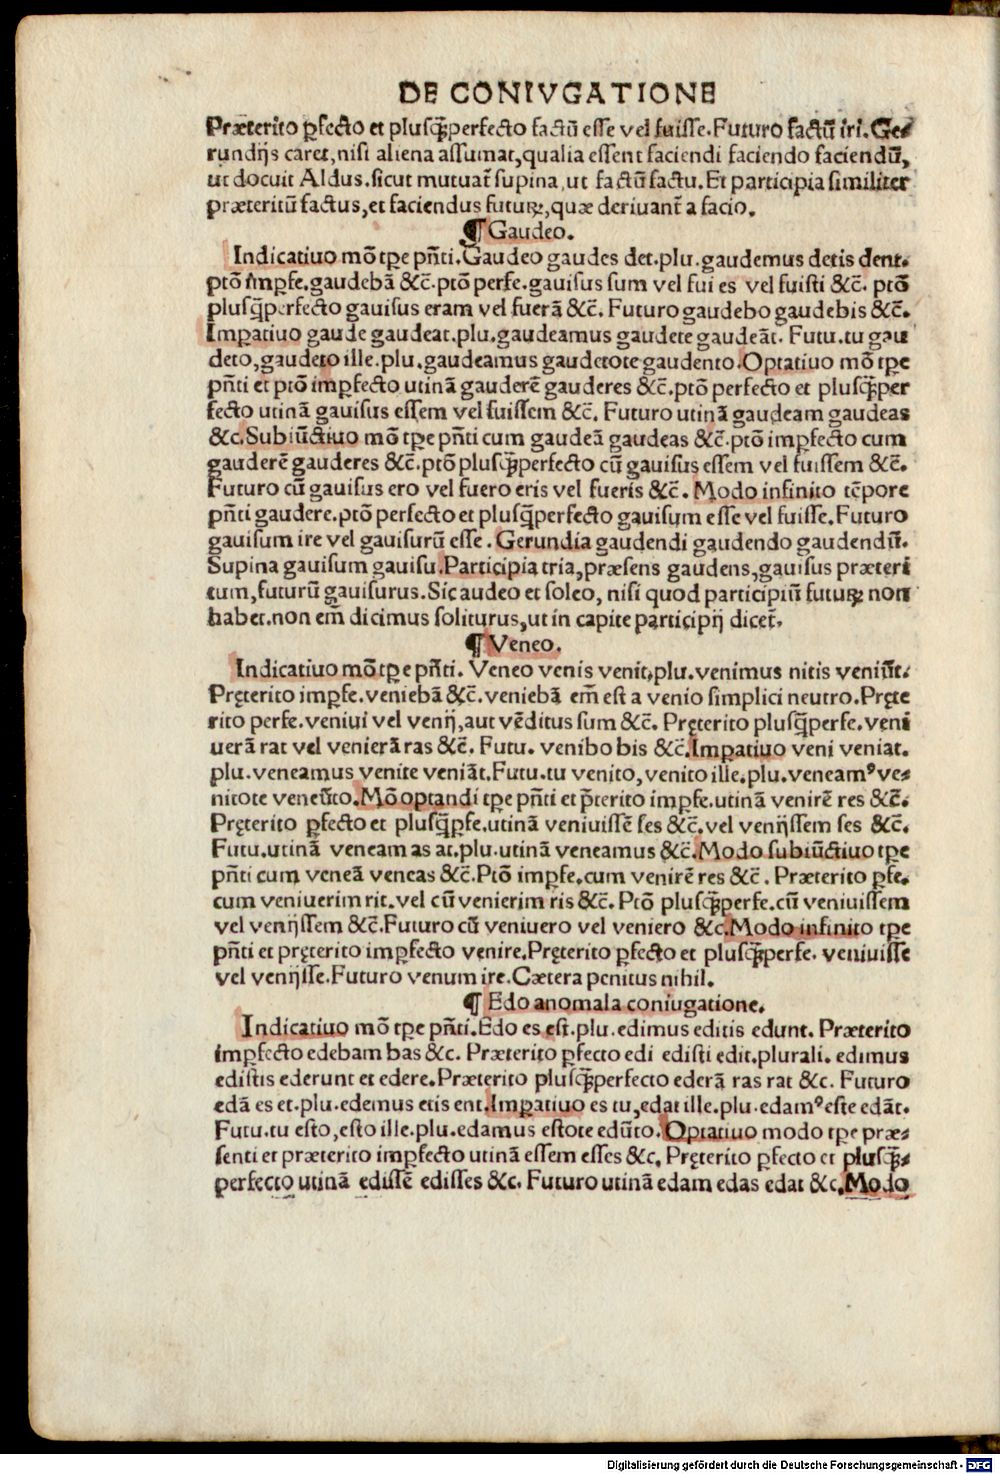 DE CONIVGATIONE
Præterito ꝑfecto et plusꝗ̃perfecto factũ esse vel fuisse. Futuro factũ iri. Ge⸗
rundijs caret, nisi aliena assumat, qualia essent faciendi faciendo faciendũ,
ut docuit Aldus. sicut mutuat̃ supina, ut factũ factu. Et participia similiter
præteritũ factus, et faciendus futurꝝ, quæ derivant̃ a facio.
¶ Gaudeo.
Indicatiuo mõ tꝑe pñti. Gaudeo gaudes det. plu. gaudemus detis dent.
ptõ imꝑfe. gaudebã &c̃. ptõ perfe. gauisus sum vel fui es vel fuisti &c̃. ptõ
plusꝗ̃perfecto gauisus eram vel fuerã &c̃. Futuro gaudebo gaudebis &c̃.
Imꝑatiuo gaude gaudeat. plu. gaudeamus gaudete gaudeãt. Futu. tu gau
deto, gaudeto ille. plu. gaudeamus gaudetote gaudento. Optatiuo mõ tꝑe
pñti et ptõ imꝑfecto utinã gauderẽ gauderes &c̃. ptõ perfecto et plusꝗ̃per
fecto utinã gauisus essem vel fuissem &c̃. Futuro utinã gaudeam gaudeas
&c. Subiũctiuo mõ tꝑe pñti cum gaudeã gaudeas &c̃. ptõ imꝑfecto cum
gauderẽ gauderes &c̃. ptõ plusꝗ̃perfecto cũ gauisus essem vel fuissem &c̃.
Futuro cũ gauisus ero vel fuero eris vel fueris &c̃. Modo infinito tẽpore
pñti gaudere. ptõ perfecto et plusꝗ̃perfecto gauisum esse vel fuisse. Futuro
gauisum ire vel gauisurũ esse. Gerundia gaudendi gaudendo gaudendũ.
Supina gauisum gauisu. Participia tria, præsens gaudens, gauisus præteri
tum, futurũ gauisurus. Sic audeo et soleo, nisi quod participiũ futurꝝ non
habet. non em̃ dicimus soliturus, ut in capite participij dicet̃.
¶ Veneo.
Indicatiuo mõ tꝑe pñti. Veneo venis venit, plu. venimus nitis veniũt.
Pręterito imꝑfe. veniebã &c̃. veniebã em̃ est a venio simplici neutro. Pręte
rito perfe. veniui vel venij, aut vẽditus sum &c̃. Pręterito plusꝗ̃perfe. veni
uerã rat vel venierã ras &c̃. Futu. venibo bis &c̃. Imꝑatiuo veni veniat.
plu. veneamus venite veniãt. Futu. tu venito, venito ille. plu. veneamꝰ ve⸗
nitote veneũto. Mõ optandi tꝑe pñti et p̃terito imꝑfe. utinã venirẽ res &c̃.
Pręterito ꝑfecto et plusꝗ̃ꝑfe. utinã veniuissẽ ses &c̃. vel venijssem ses &c̃.
Futu. utinã veneam as at. plu. utinã veneamus &c̃. Modo subiũctiuo tꝑe
pñti cum veneã veneas &c̃. Ptõ imꝑfe. cum venirẽ res &c̃. Præterito ꝑfe.
cum veniuerim rit. vel cũ venierim ris &c̃. Ptõ plusꝗ̃perfe. cũ veniuissem
vel venijssem &c̃. Futuro cũ veniuero vel veniero &c. Modo infinito tꝑe
pñti et pręterito imꝑfecto venire. Pręterito ꝑfecto et plusꝗ̃perfe. veniuisse
vel venijsse. Futuro venum ire. Cætera penitus nihil.
¶ Edo anomala coniugatione.
Indicatiuo mõ tꝑe pñti. Edo es est. plu. edimus editis edunt. Præterito
imꝑfecto edebam bas &c. Præterito ꝑfecto edi edisti edit. plurali. edimus
edistis ederunt et edere. Præterito plusꝗ̃perfecto ederã ras rat &c. Futuro
edã es et. plu. edemus etis ent. Imꝑatiuo es tu, edat ille. plu. edamꝰ este edãt.
Futu. tu esto, esto ille. plu. edamus estote edũto. Optatiuo modo tꝑe præ⸗
senti et præterito imꝑfecto utinã essem esses &c. Pręterito ꝑfecto et plusꝗ̃⸗
perfecto utinã edissẽ edisses &c. Futuro utinã edam edas edat &c. Modo
Digitalisierung gefördert durch die Deutsche Forschungsgemeinschaft - DFG